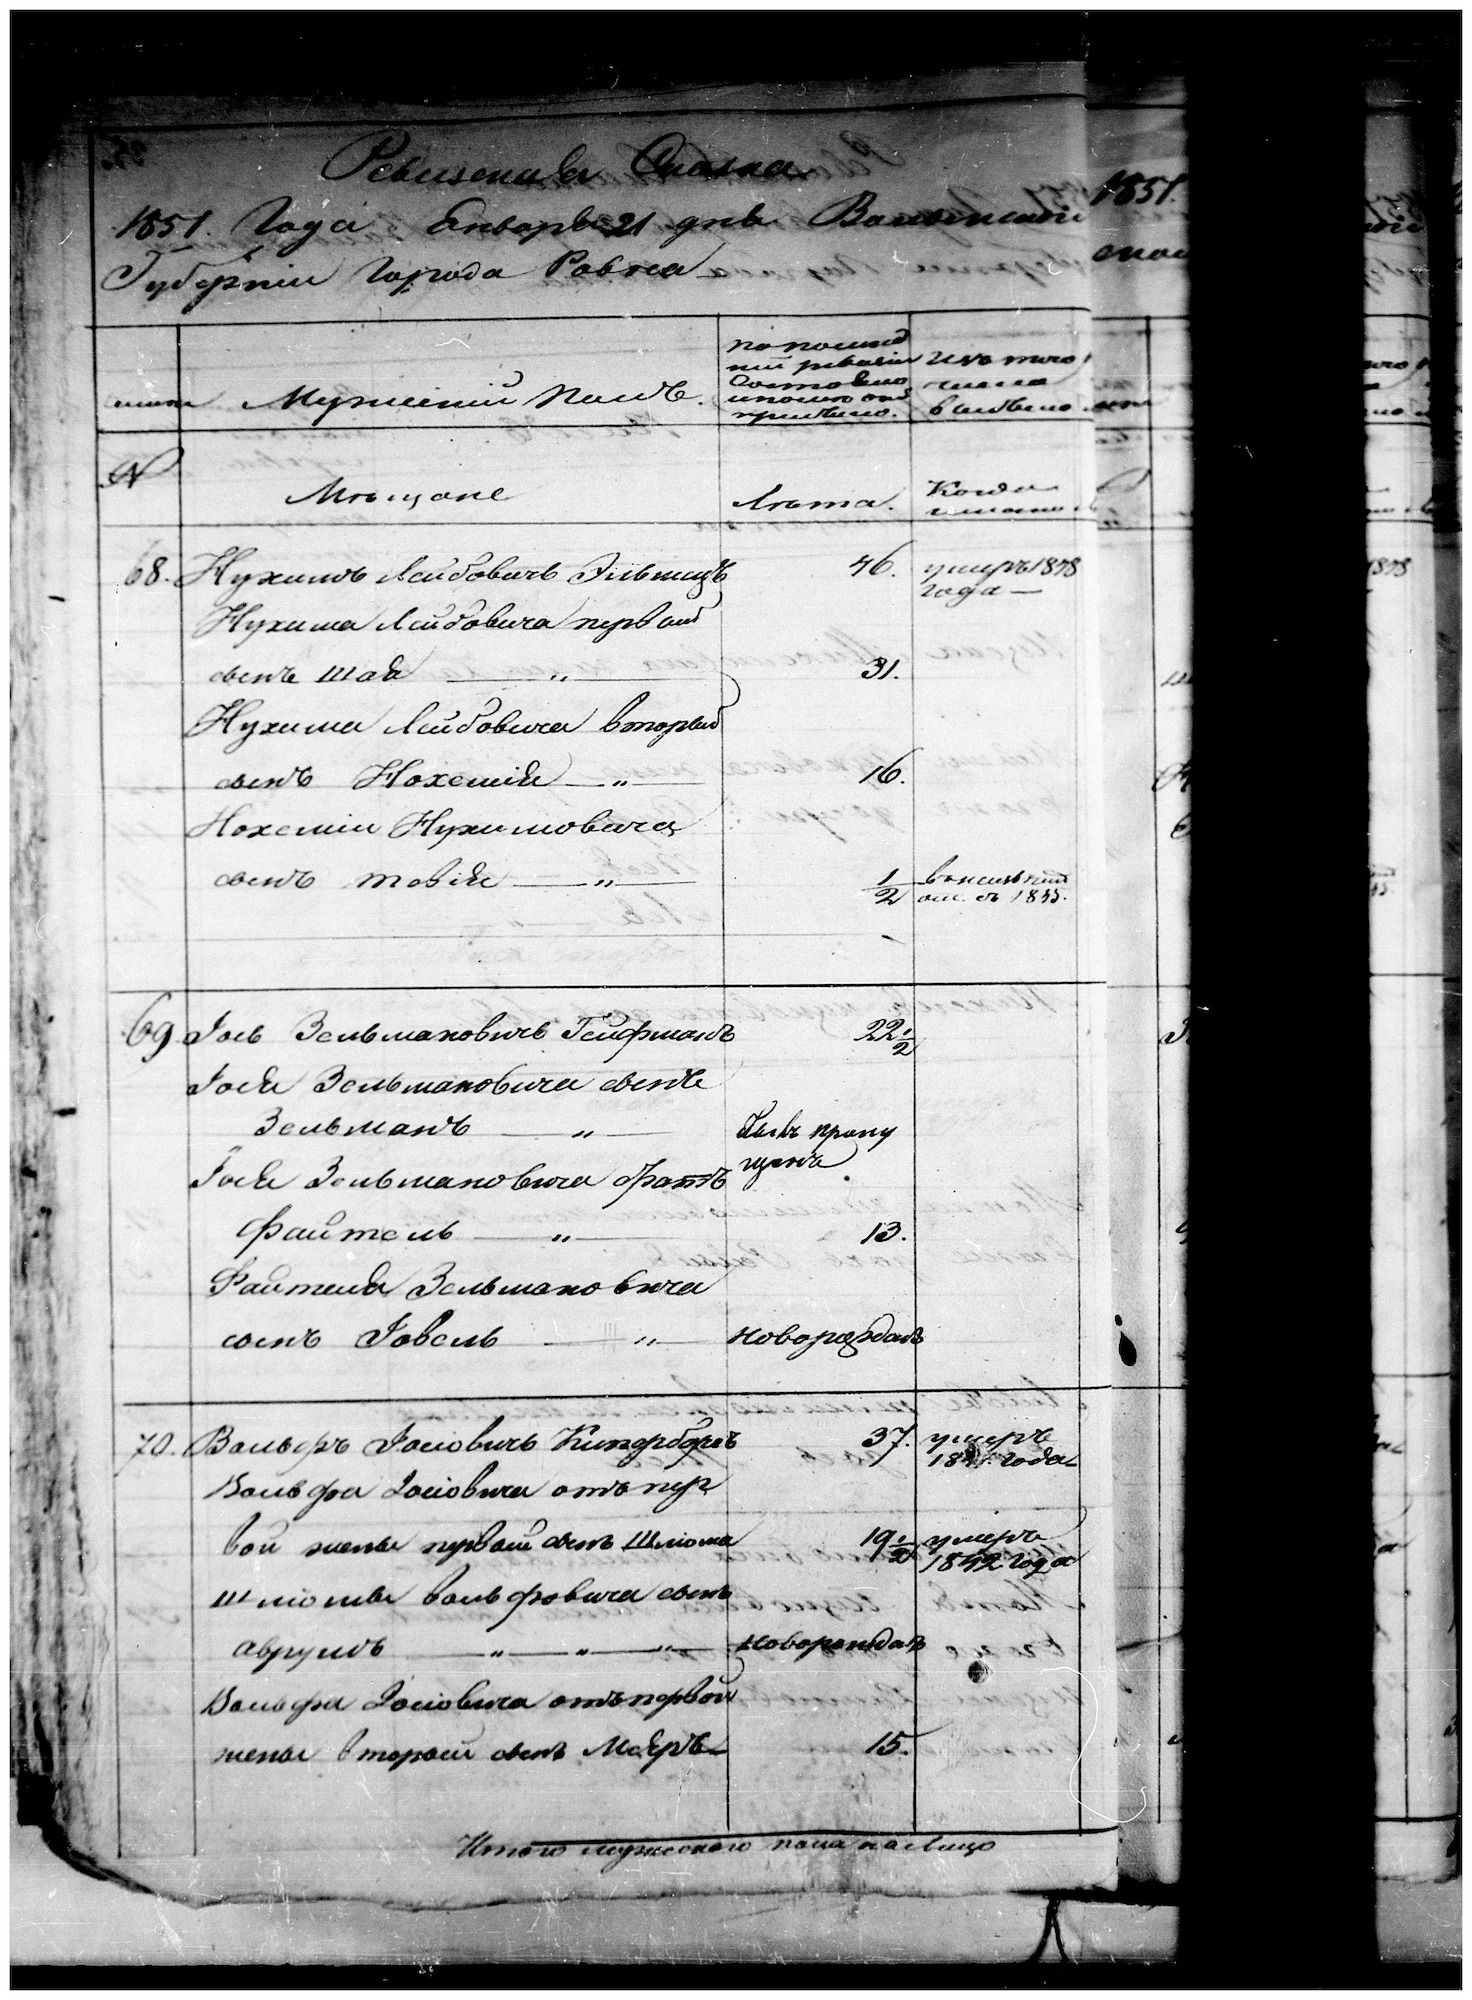 Ревизская Сказка
1851. Года Генваря 21 дня Волынской
Губерніи Города Ровна
Мужескій полъ.
По послед
ней ревизіи
Состояло
и после оной
прибыло.
Изъ того
числа
выбыло
№
Мещане
Лета.
Когда
именно
68. Нухимъ Лейбовичъ
46. умеръ 1848
года
Нухима Лейбовича первый
сынъ Шая — „ —
31.
Нухима Лейбовича вторый
сынъ Нохемія — „ —
16.
Нохеміи Нухимовича
сынъ товія — „ —
1/2
1845.
69 Іось Зельмановичъ Гейфманъ
22 1/2
Іося Зельмановича сынъ
Зельманъ — „ —
былъ пропу
щенъ
Іося Зельмановича братъ
Файтель — „ —
13.
Файтеля Зельмановича
сынъ Іовель — „ —
новорожданъ
70. Вольфъ Іосіовичъ
37. умеръ
года
Вольфа Іосіовича отъ пер
вой жены первый сынъ Шлиома
19 1/2 умеръ
1842 года
Шлиомы Вольфовича сынъ
аврумъ — „ — „ — „ —
новорожданъ
Вольфа Іосіовича отъ первой
жены вторый сынъ Меяръ
15.
Итого мужескаго пола на лицо
1851.